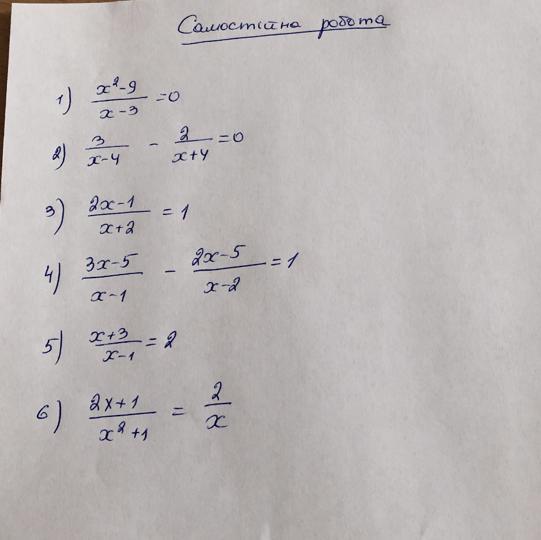 Самостійна робота
1) (x²-9)/(x-3) = 0
2) 3/(x-4) - 2/(x+4) = 0
3) (2x-1)/(x+2) = 1
4) (3x-5)/(x-1) - (2x-5)/(x-2) = 1
5) (x+3)/(x-1) = 2
6) (2x+1)/(x²+1) = 2/x